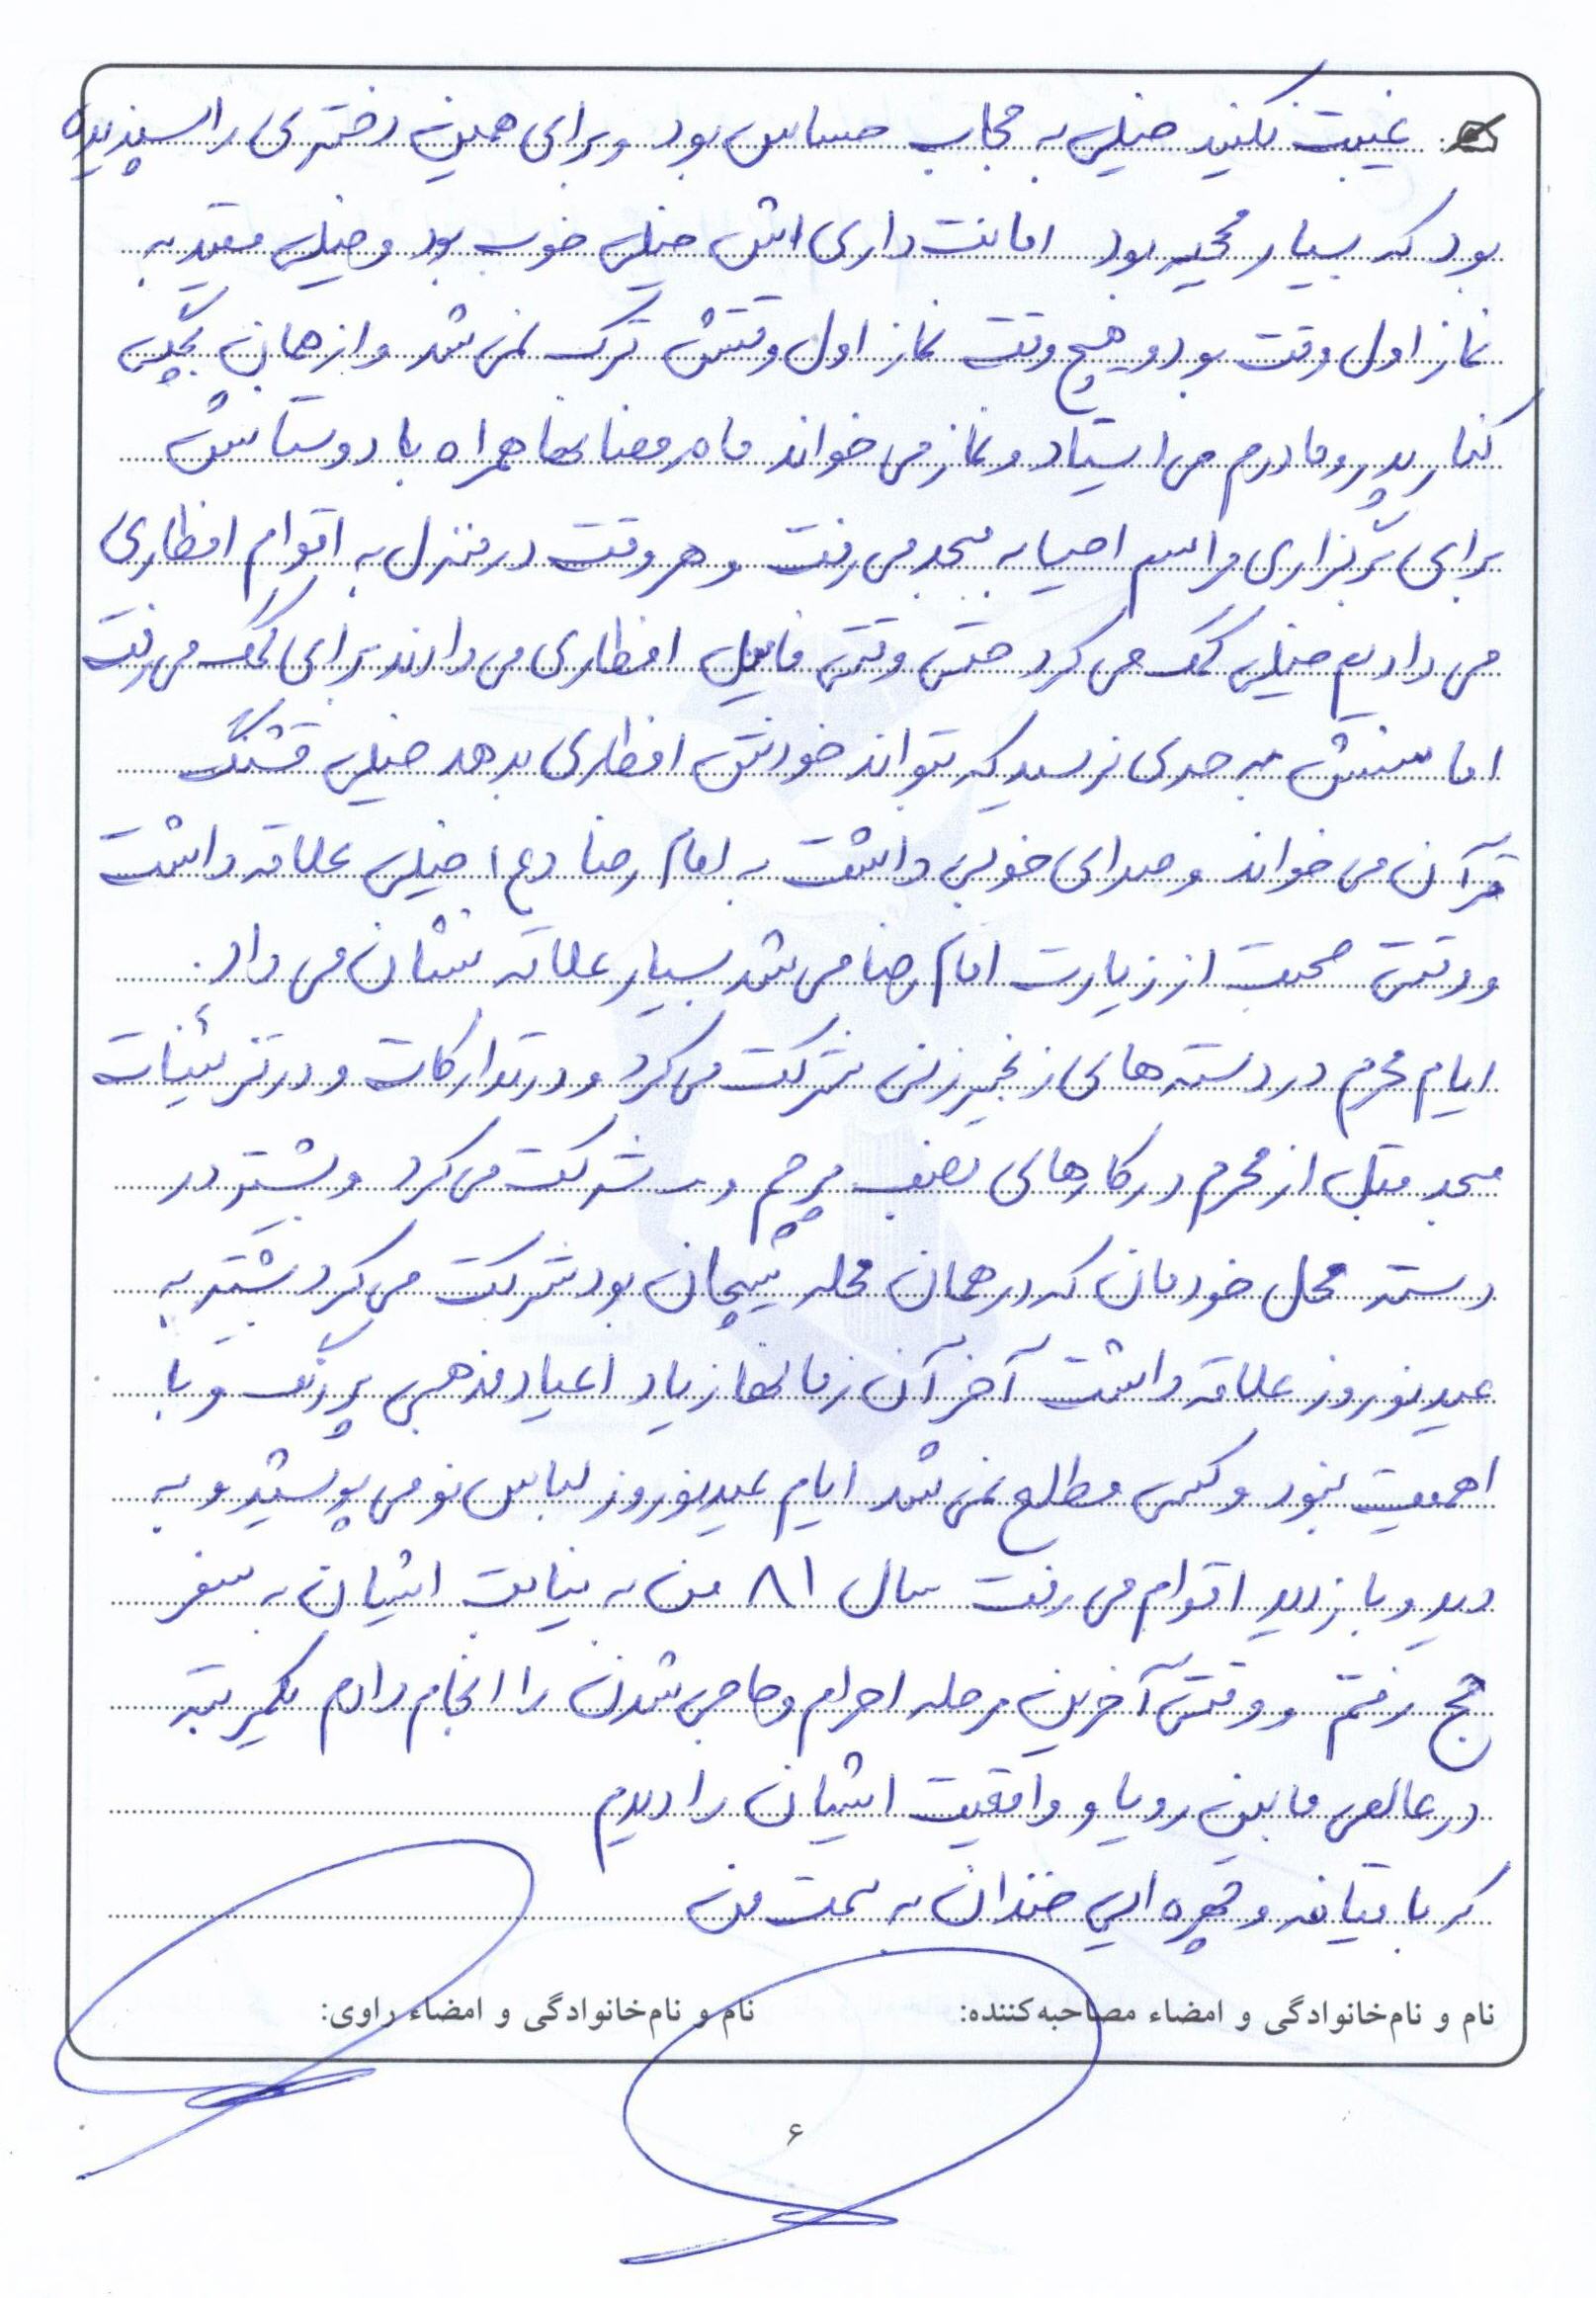 غیبت نکنید خیلی به حجاب حساس بود و برای همین دختری را پسندیده
بود که بسیار محجبه بود امانت داری اش خیلی خوب بود و خیلی مقید به
نماز اول وقت بود و هیچ وقت نماز اول وقتش ترک نمی شد و از همان بچگی
کنار پدر و مادرم می ایستاد و نماز می خواند ماه رمضانها همراه با دوستانش
برای برگزاری مراسم احیا به مسجد می رفت و هر وقت در منزل به اقوام افطاری
می دادیم خیلی کمک می کرد حتی وقتی فامیل افطاری می دادند برای کمک می رفت
اما سنش به حدی نرسید که بتواند خودش افطاری بدهد خیلی قشنگ
قرآن می خواند و صدای خوبی داشت به امام رضا (ع) خیلی علاقه داشت
و وقتی صحبت از زیارت امام رضا می شد بسیار علاقه نشان می داد.
ایام محرم در دسته های زنجیرزنی شرکت می کرد و در تدارکات و در تزئینات
مسجد قبل از محرم در کارهای نصب پرچم و... شرکت می کرد و بیشتر در
دسته محل خودمان که در همان محله شیچان بود شرکت می کرد بیشتر به
عید نوروز علاقه داشت آخر آن زمانها زیاد اعیاد مذهبی پررنگ و با
اهمیت نبود و کسی مطلع نمی شد ایام عید نوروز لباس نو می پوشید و به
دید و بازدید اقوام می رفت سال ۸۱ من به نیابت ایشان به سفر
حج رفتم و وقتی آخرین مرحله احرام و حاجی شدن را انجام دادم یکمرتبه
در عالمی مابین رویا و واقعیت ایشان را دیدم
که با قیافه و چهره ایی خندان به سمت من
نام و نام‌خانوادگی و امضاء مصاحبه‌کننده: نام و نام‌خانوادگی و امضاء راوی:
۶